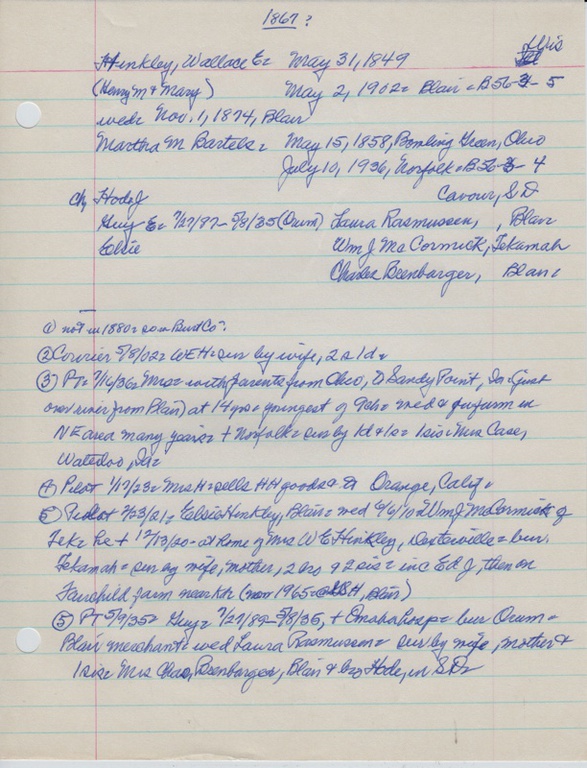 1867?
Hinkley, Wallace E= May 31, 1849
(Henry M & Mary) May 2, 1902= Blair = B56-3-5
wed= Nov. 1, 1874, Blair
Martha M Bartels= May 15, 1858, Bowling Green, Ohio
July 10, 1936, Norfolk= B56-3-4
Ch, Hode J Cavour, S.D
Guy E= 7/27/87-5/8/35 (Orum) Laura Rasmussen, , Blair
Elsie Wm J. MacCormick, Tekamah
Charles Beenbarger, Blair
① not in 1880= Co?
② Courier 5/8/02= WEH= sur by wife, 2 s 1d=
③ PT= 7/16/36= Mrs= with parents from Ohio, to Sandy Point, Ia= (just
over river from Blair) at 14 yrs= youngest of 9ch= wed & farm in
NE area many years= + Norfolk= sur by 1d & 1s= 1 sis= Mrs Case,
Waterloo, Ia=
④ Pilot 1/17/23= Mrs H= sells HH goods= Orange, Calif=
⑤ Pilot 2/23/21= Elsie Hinkley, Blair= wed 4/6/10= Wm J McCormick of
Tek= + 12/13/20= at home of Mrs W E Hinkley, Dexterville= bur.
Tekamah= sur by wife, mother, 2 bro & 2 sis= inc Ed J, then on
Fairchild farm near Kth (now 1965= H, Blair)
⑤ PT 5/9/35= Guy= 7/27/89-5/8/35, + Omaha hosp= bur Orum=
Blair merchant= wed Laura Rasmussen= sur by wife, mother &
1 sis= Mrs Chas, Beenbarger, Blair & bro Hode, in S.D=